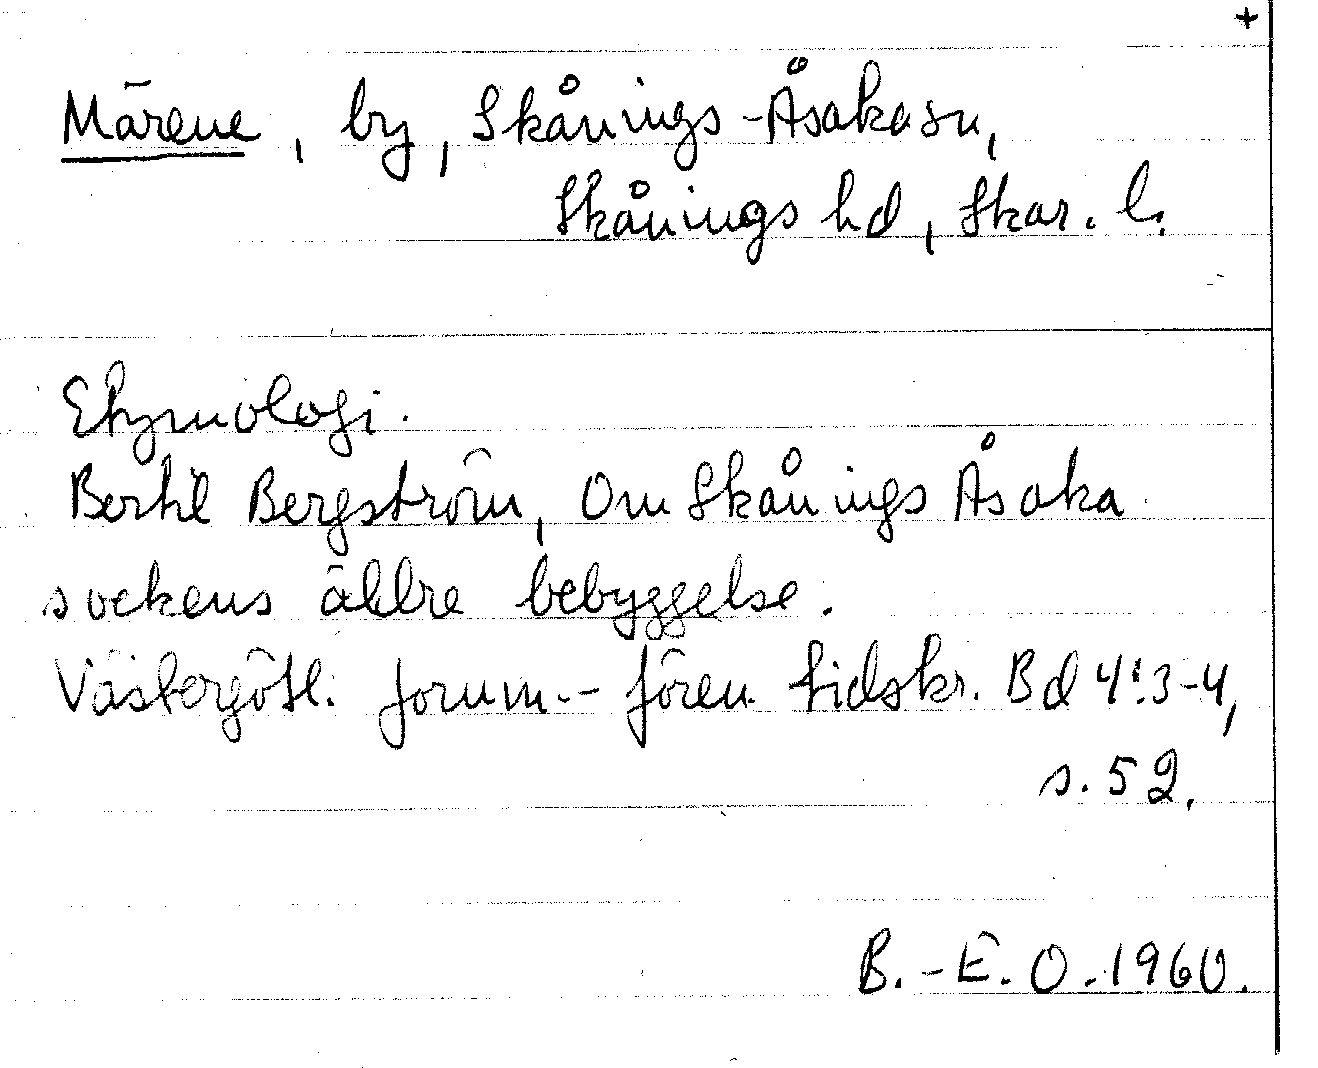 +
Märene, by, Skånings-Åsaka sn,
Skånings hd, Skar. l.
Etymologi.
Bertil Bergström, Om Skånings Åsaka
sockens äldre bebyggelse.
Västergötl. fornm.-fören. tidskr. Bd 4:3-4,
s. 52.
B.-E. O. 1960.